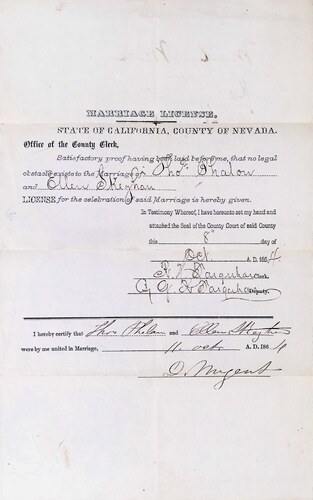 MARRIAGE LICENSE.
STATE OF CALIFORNIA, COUNTY OF NEVADA.
Office of the County Clerk,
Satisfactory proof having been laid before me, that no legal
obstacle exists to the Marriage of Thos Phalon
and Ellen Skeghan
LICENSE for the celebration of said Marriage is hereby given.
In Testimony Whereof, I have hereunto set my hand and
attached the Seal of the County Court of said County
this 8th day of
Oct. A. D. 1864
R. H. Farquhar Clerk.
By G. K. Farquhar Deputy.
I hereby certify that Thos Phelan and Ellen
were by me united in Marriage, 11 oct. A. D. 1864
D. Nugent